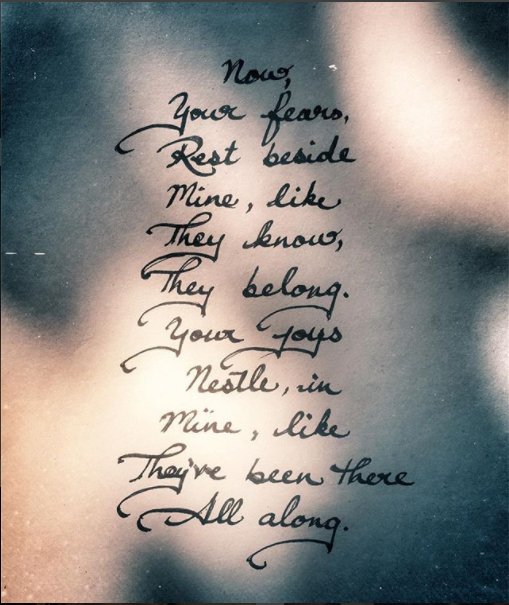 Now,
Your fears,
Rest beside
Mine, like
They know,
They belong.
Your joys
Nestle, in
Mine, like
They've been there
All along.